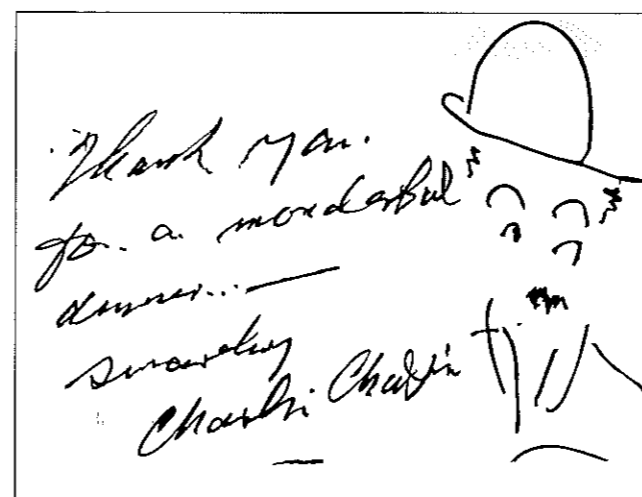 Thank you.
for a wonderful
dinner...—
Sincerely
Charlie Chaplin